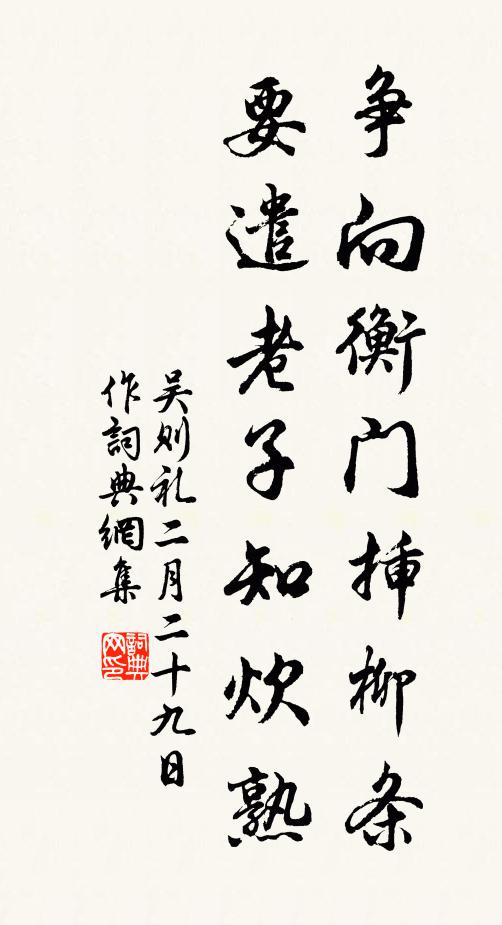 争向衡门插柳条
要遣老子知炊熟
吴则礼二月二十九日
作词典網集
詞典网印